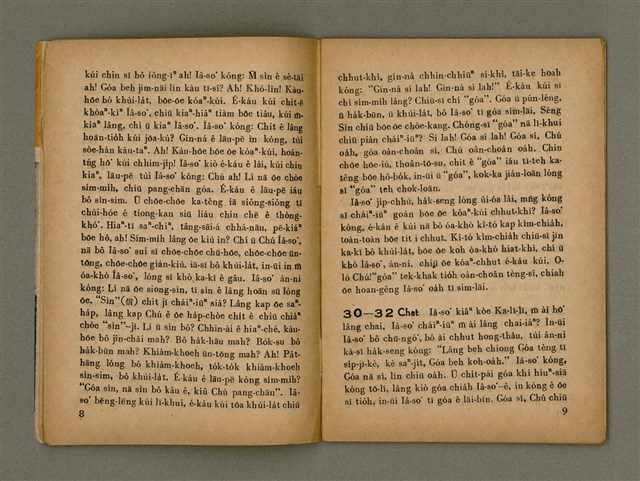 kúi chin sī bô iông-īⁿ ah! Iâ-so͘ kóng: M̄ sìn ê sè-tāi
ah! Góa beh jím-nāi lín kàu tī-sî? Ah! Khó-lîn! Kàu-
hōe bô khùi-la̍t, bōe-ōe kóaⁿ-kúi. É-káu kúi chi̍t-ē
khòaⁿ-kìⁿ Iâ-so͘, chiū kiaⁿ-hiáⁿ tiàm bōe tiâu, kúi m̄-
kiaⁿ lâng, chí ū kiaⁿ Iâ-so͘. Iâ-so͘ kóng: Chit ê lâng
hoān-tio̍h kúi jōa-kú? Gín-ná ê lāu-pē ìn kóng, tùi
sòe-hàn kàu-taⁿ. Ah! Kàu-hōe bōe ōe kóaⁿ-kúi, hoán-
tńg hō͘ kúi chhim-ji̍p! Iâ-so͘ kiò é-káu ê lâi, kúi chin
kiaⁿ, lāu-pē tùi Iâ-so͘ kóng: Chú ah! Lí nā ōe chòe
sím-mi̍h, chiū pang-chān góa. É-káu ê lāu-pē iáu
bô sìn-sim. Ū chōe-chōe ka-têng iā siông-siông tī
chúi-hóe ê tiong-kan siū liáu chìn chē ê thòng-
khó͘. Hiaⁿ-tī saⁿ-chiⁿ, tâng-sāi-á chhá-nāu, pē-kiáⁿ
bōe hô, ah! Sím-mi̍h lâng ōe kiù in? Chí ū Chú Iâ-so͘,
nā bô Iâ-so͘ sui sī chōe-chōe chū-hōe, chōe-chōe ūn-
tōng, chōe-chōe gián-kiù, iā-sī bô khùi-la̍t, in-ūi in m̄
óa-khò Iâ-so͘, lóng sī khò ka-kī ê gâu. Iâ-so͘ án-ni
kóng: Lí nā ōe siong-sìn, tī sìn ê lâng hoān sū lóng
ōe. “Sìn”(信) chit jī cháiⁿ-iūⁿ siá? Lâng kap ōe saⁿ-
ha̍p, lâng kap Chú ê ōe ha̍p-chòe chi̍t ê chiū chiâⁿ
chòe “sìn”-jī. Lí ū sìn bô? Chhin-ài ê hiaⁿ-ché, kàu-
hōe bô jīn-chái mah? Bô ha̍k-hāu mah? Bo̍k-su bô
ha̍k-būn mah? Khiàm-khoeh ūn-tōng mah? Ah! Pa̍t-
hāng lóng bô khiàm-khoeh, to̍k-to̍k khiàm-khoeh
sìn-sim, bô khùi-la̍t. É-káu ê lāu-pē kóng sím-mi̍h?
“Góa sìn, nā sìn bô kàu ê, kiû Chú pang-chān”. Iâ-
so͘ bēng-lēng kúi lī-khui, é-káu kúi tōa khùi-la̍t chiū
8
chhut-khì, gín-ná chhin-chhiūⁿ sí-khì, tāi-ke hoah
kóng: “Gín-ná sí lah! Gín-ná sí lah!” É-káu kúi sī
chí sím-mi̍h lâng? Chiū-sī chí “góa”. Góa ū pún-lêng,
ū ha̍k-būn, ū khùi-la̍t, bô Iâ-so͘ tī góa sim-lāi, Sèng
Sîn chiū bōe-ōe chòe-kang. Chóng-sī “góa” nā lī-khui
chiū piàn cháiⁿ-iūⁿ? Sí lah! Góa sí lah! Góa sí, Chú
oa̍h, góa oân-choân sí, Chú oân-choân oa̍h. Chin
chōe hōe-iú, thoân-tō-su, chi̍t ê “góa” iáu tī-teh ka-
têng bōe hô-bo̍k, in-ūi ū “góa”, kok-ka jiáu-loān lóng
sī “góa” teh chok-loān.
Iâ-so͘ ji̍p-chhù, ha̍k-seng lóng ûi-óa lâi, mn̄g kóng
sī cháiⁿ-iūⁿ goán bōe ōe kóaⁿ-kúi chhut-khì? Iâ-so͘
kóng, é-káu ê kúi nā bô óa-khò kî-tó kap kìm-chia̍h,
toàn-toàn bōe tit i chhut. Kî-tó kìm-chia̍h chiū-sī jīn
ka-kī bô khùi-la̍t, bōe ōe koh óa-khò hiat-khì, chí ū
khò Iâ-so͘, án-ni, chiū ōe kóaⁿ-chhut é-káu kúi. O-
ló Chú! “góa” tek-khak tio̍h oân-choân tèng-sí, chiah
ōe hoan-gêng Iâ-so͘ oa̍h tī sim-lāi.
30—32 Chat Iâ-so͘ kiâⁿ kòe Ka-lī-lī, m̄ ài hō͘
lâng chai, Iâ-so͘ cháiⁿ-iūⁿ m̄ ài lâng chai-iáⁿ? In-ūi
Iâ-so͘ bô chū-ngō͘, bô ài chhut hong-thâu, túi án-ni
kà-sī ha̍k-seng kóng: “Lâng beh chiong Góa tèng tī
si̍p-jī-kè, kè saⁿ-ji̍t, Góa beh koh-oa̍h.” Iâ-so͘ kóng,
Góa nā sí, lín chiū oa̍h. Ū chi̍t-pái góa khì hiuⁿ-siā
kóng tō-lí, lâng kiò góa chia̍h Iâ-so͘--ê, in kóng ê ōe
sī tio̍h, in-ūi Iâ-so͘ tī góa ê lāi-bīn. Góa sí, Chú chiū
9